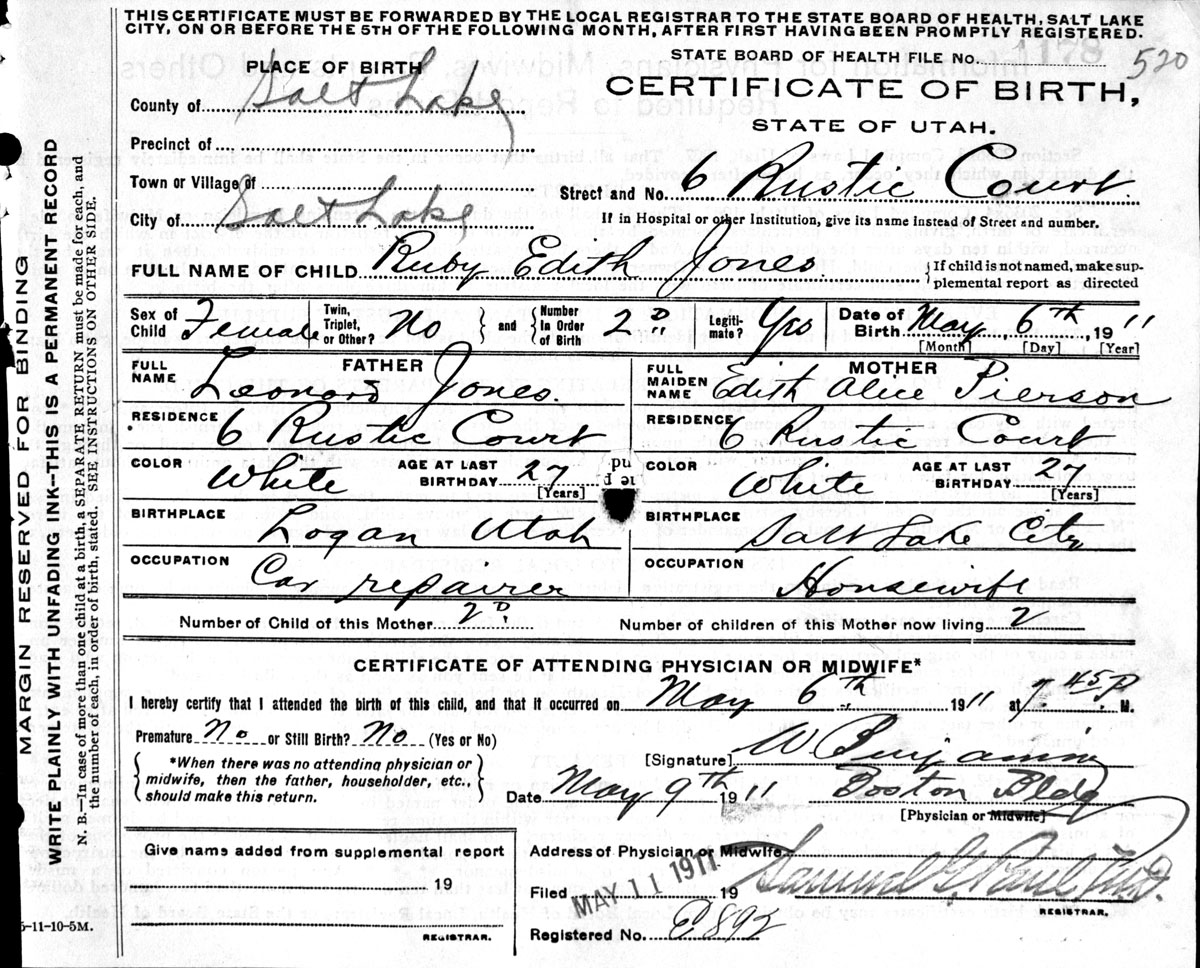 THIS CERTIFICATE MUST BE FORWARDED BY THE LOCAL REGISTRAR TO THE STATE BOARD OF HEALTH, SALT LAKE
CITY, ON OR BEFORE THE 5TH OF THE FOLLOWING MONTH, AFTER FIRST HAVING BEEN PROMPTLY REGISTERED.
STATE BOARD OF HEALTH FILE No. 1178 520
PLACE OF BIRTH
CERTIFICATE OF BIRTH,
County of Salt Lake
STATE OF UTAH.
Precinct of
Town or Village of
Street and No. 6 Rustic Court
City of Salt Lake
If in Hospital or other Institution, give its name instead of Street and number.
FULL NAME OF CHILD Ruby Edith Jones
If child is not named, make sup-
plemental report as directed
Sex of Child Female
Twin, Triplet, or Other? No
and Number In Order of Birth 2D
Legiti- mate? Yes
Date of Birth May 6th, 1911
[Month] [Day] [Year]
FATHER
FULL NAME Leonard Jones.
MOTHER
FULL MAIDEN NAME Edith Alice Pierson
RESIDENCE 6 Rustic Court
RESIDENCE 6 Rustic Court
COLOR White AGE AT LAST BIRTHDAY 27 [Years]
COLOR White AGE AT LAST BIRTHDAY 27 [Years]
BIRTHPLACE Logan Utah
BIRTHPLACE Salt Lake City
OCCUPATION Car repairer
OCCUPATION Housewife
Number of Child of this Mother 2D.
Number of children of this Mother now living 2
CERTIFICATE OF ATTENDING PHYSICIAN OR MIDWIFE*
I hereby certify that I attended the birth of this child, and that it occurred on May 6th 1911 at 7.45 P M.
Premature No or Still Birth? No (Yes or No)
[Signature] W Benjamin
*When there was no attending physician or
midwife, then the father, householder, etc.,
should make this return.
Date May 9th 1911 Boston Bldg
[Physician or Midwife]
Give name added from supplemental report
19
REGISTRAR.
Address of Physician or Midwife
Filed MAY 11 1911 19 Samuel G. Paul
REGISTRAR.
Registered No. P892
5-11-10-5M.
MARGIN RESERVED FOR BINDING
WRITE PLAINLY WITH UNFADING INK—THIS IS A PERMANENT RECORD
N. B.—In case of more than one child at a birth, a SEPARATE RETURN must be made for each, and
the number of each, in order of birth, stated. SEE INSTRUCTIONS ON OTHER SIDE.